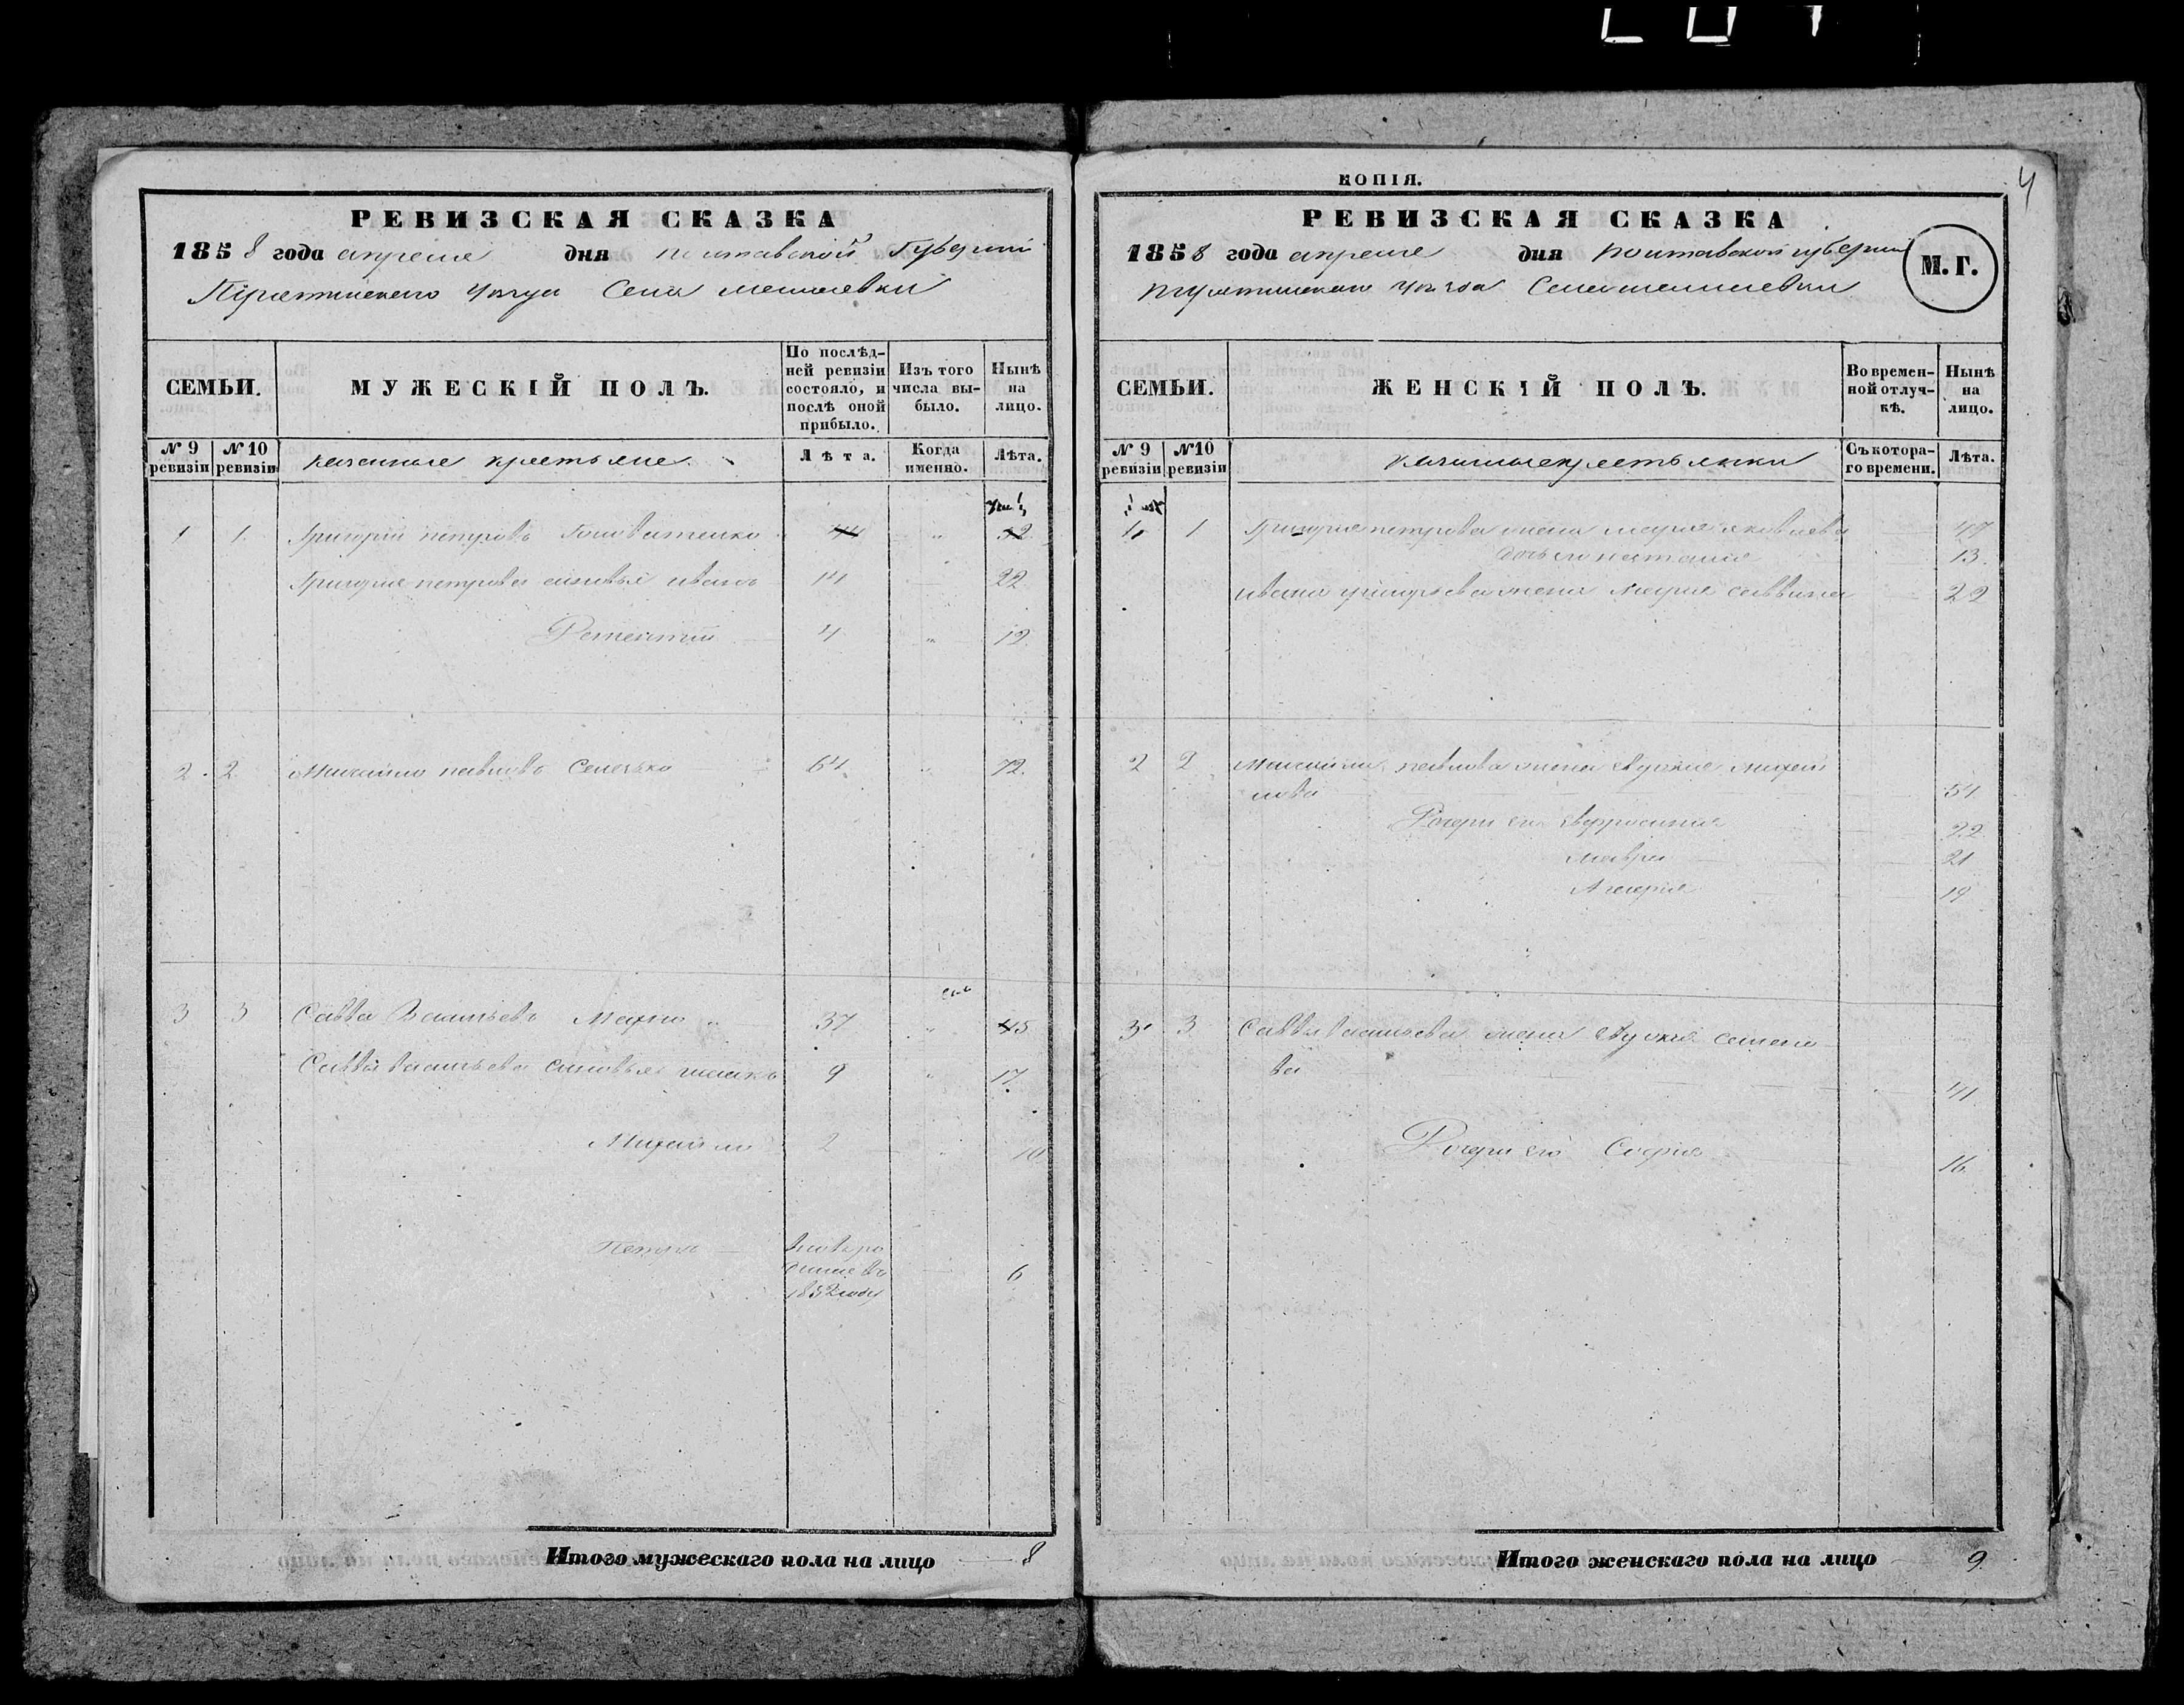 РЕВИЗСКАЯ СКАЗКА
1858 года апреля дня Полтавской Губернии
Пирятинского уезда Села
СЕМЬИ.
МУЖЕСКІЙ ПОЛЪ.
По послѣд-
ней ревизіи
состояло, и
послѣ оной
прибыло.
Изъ того
числа вы-
было.
Нынѣ
на
лицо.
№ 9
ревизіи
№ 10
ревизіи
казенные крестьяне
Лѣта.
Когда
именно.
Лѣта.
1 1 Григорій петровъ 44 " 52
Григорія петрова сыновья иванъ 14 22
4 " 12
2. 2 Михайло павловъ 64 " 72.
3 3 Савва Васильевъ Махно " 37 " 45
Саввы Васильева сыновья 9 " 17.
Михайло 2 " 10
Петръ вновь ро
1852 году
6
Итого мужескаго пола на лицо 8
КОПІЯ.
4
РЕВИЗСКАЯ СКАЗКА
1858 года апреля дня Полтавской губернии
Пирятинского уезда Села
М. Г.
СЕМЬИ.
ЖЕНСКІЙ ПОЛЪ.
Во времен-
ной отлуч-
кѣ.
Нынѣ
на
лицо.
№ 9
ревизіи
№10
ревизіи
казенные крестьянки
Съ котора-
го времени.
Лѣта.
1 1 Григорія петрова жена марія яковлева 47
дочь его наталия 13.
ивана григорьева жена Марія саввина 22
2 2 Михайлы павлова жена михай
лова 54
Дочери его Евфросинія 22
мавра 21
19
3 3 Саввы васильева жена семено
ва 41
Дочери его Софія 16
Итого женскаго пола на лицо 9.